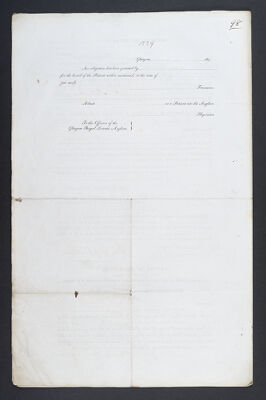 48
1729
Glasgow, 184
An obligation has been granted by
for the board of the Patient within mentioned, at the rate of
per week.
Treasurer.
Admit as a Patient into the Asylum.
Physician.
To the Officers of the
Glasgow Royal Lunatic Asylum.